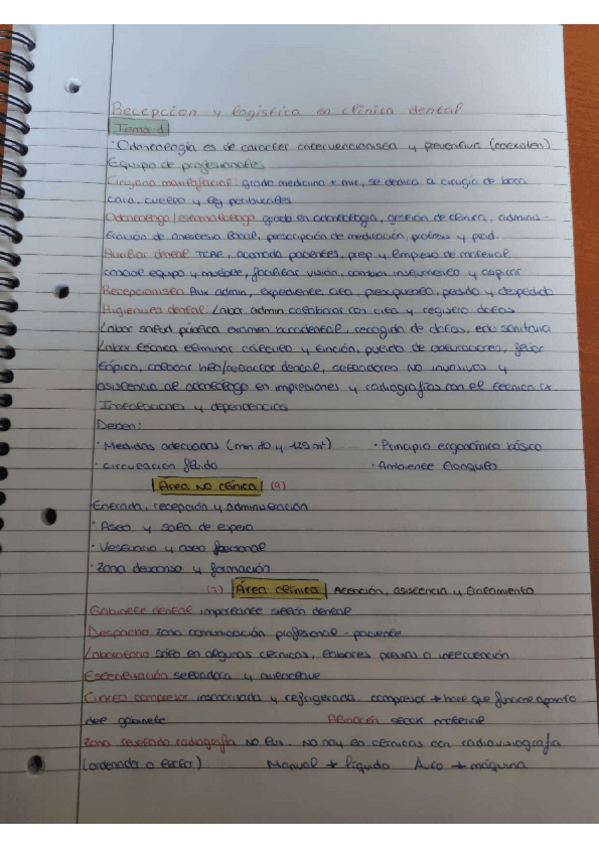 Recepción y logística en clínica dental
Tema 1
· Odontología es de carácter intervencionista y preventiva (coexisten)
Equipo de profesionales
Cirujano maxilofacial: grado medicina + mir, se dedica a cirugía de boca
cara, cuello y
Odontólogo/estomatólogo grado en odontología, gestión de clínica, adminis-
tración de anestesia local, prescripción de medicación, prótesis y prod.
Auxiliar dental TCAE, acomoda pacientes, prep y limpieza de material
equipo y facilitar visión, cambia instrumento y aspira
Recepcionista Aux admin, expediente, cita, presupuesto, pedido y despedido
Higienista dental: Labor admin colaborar con cita y registro datos
Labor salud pública examen bucodental, recogida de datos, edu sanitaria
Labor técnica eliminar cálculo y tinción, pulido de obturaciones, flúor
tópico, colocar hilo/retractor dental, selladores no invasivos y
asistencia al odontólogo en impresiones y radiografías con el técnico rx
Instalaciones y dependencias
Deben:
· Medidas adecuadas (min 80 y 120 m²) · Principio ergonómico básico
· Circulación fluida · Ambiente tranquilo
Área No Clínica (4)
· Entrada, recepción y administración
· Aseo y sala de espera
· Vestuario y aseo personal
· Zona descanso y formación
(7) Área clínica Atención, asistencia y tratamiento
Gabinete dental importante sillón dental
Despacho zona comunicación profesional - paciente
Laboratorio Solo en algunas clínicas, pruebas o intervención
Esterilización selladora y autoclave
compresor insonorizada y refrigerada. compresor → hace que funcione aparato
del gabinete Almacén según material
Zona revelado radiografía No luz. No hay en clínicas con radiovisiografía
(ordenador o lector) Manual → líquido Auto → máquina